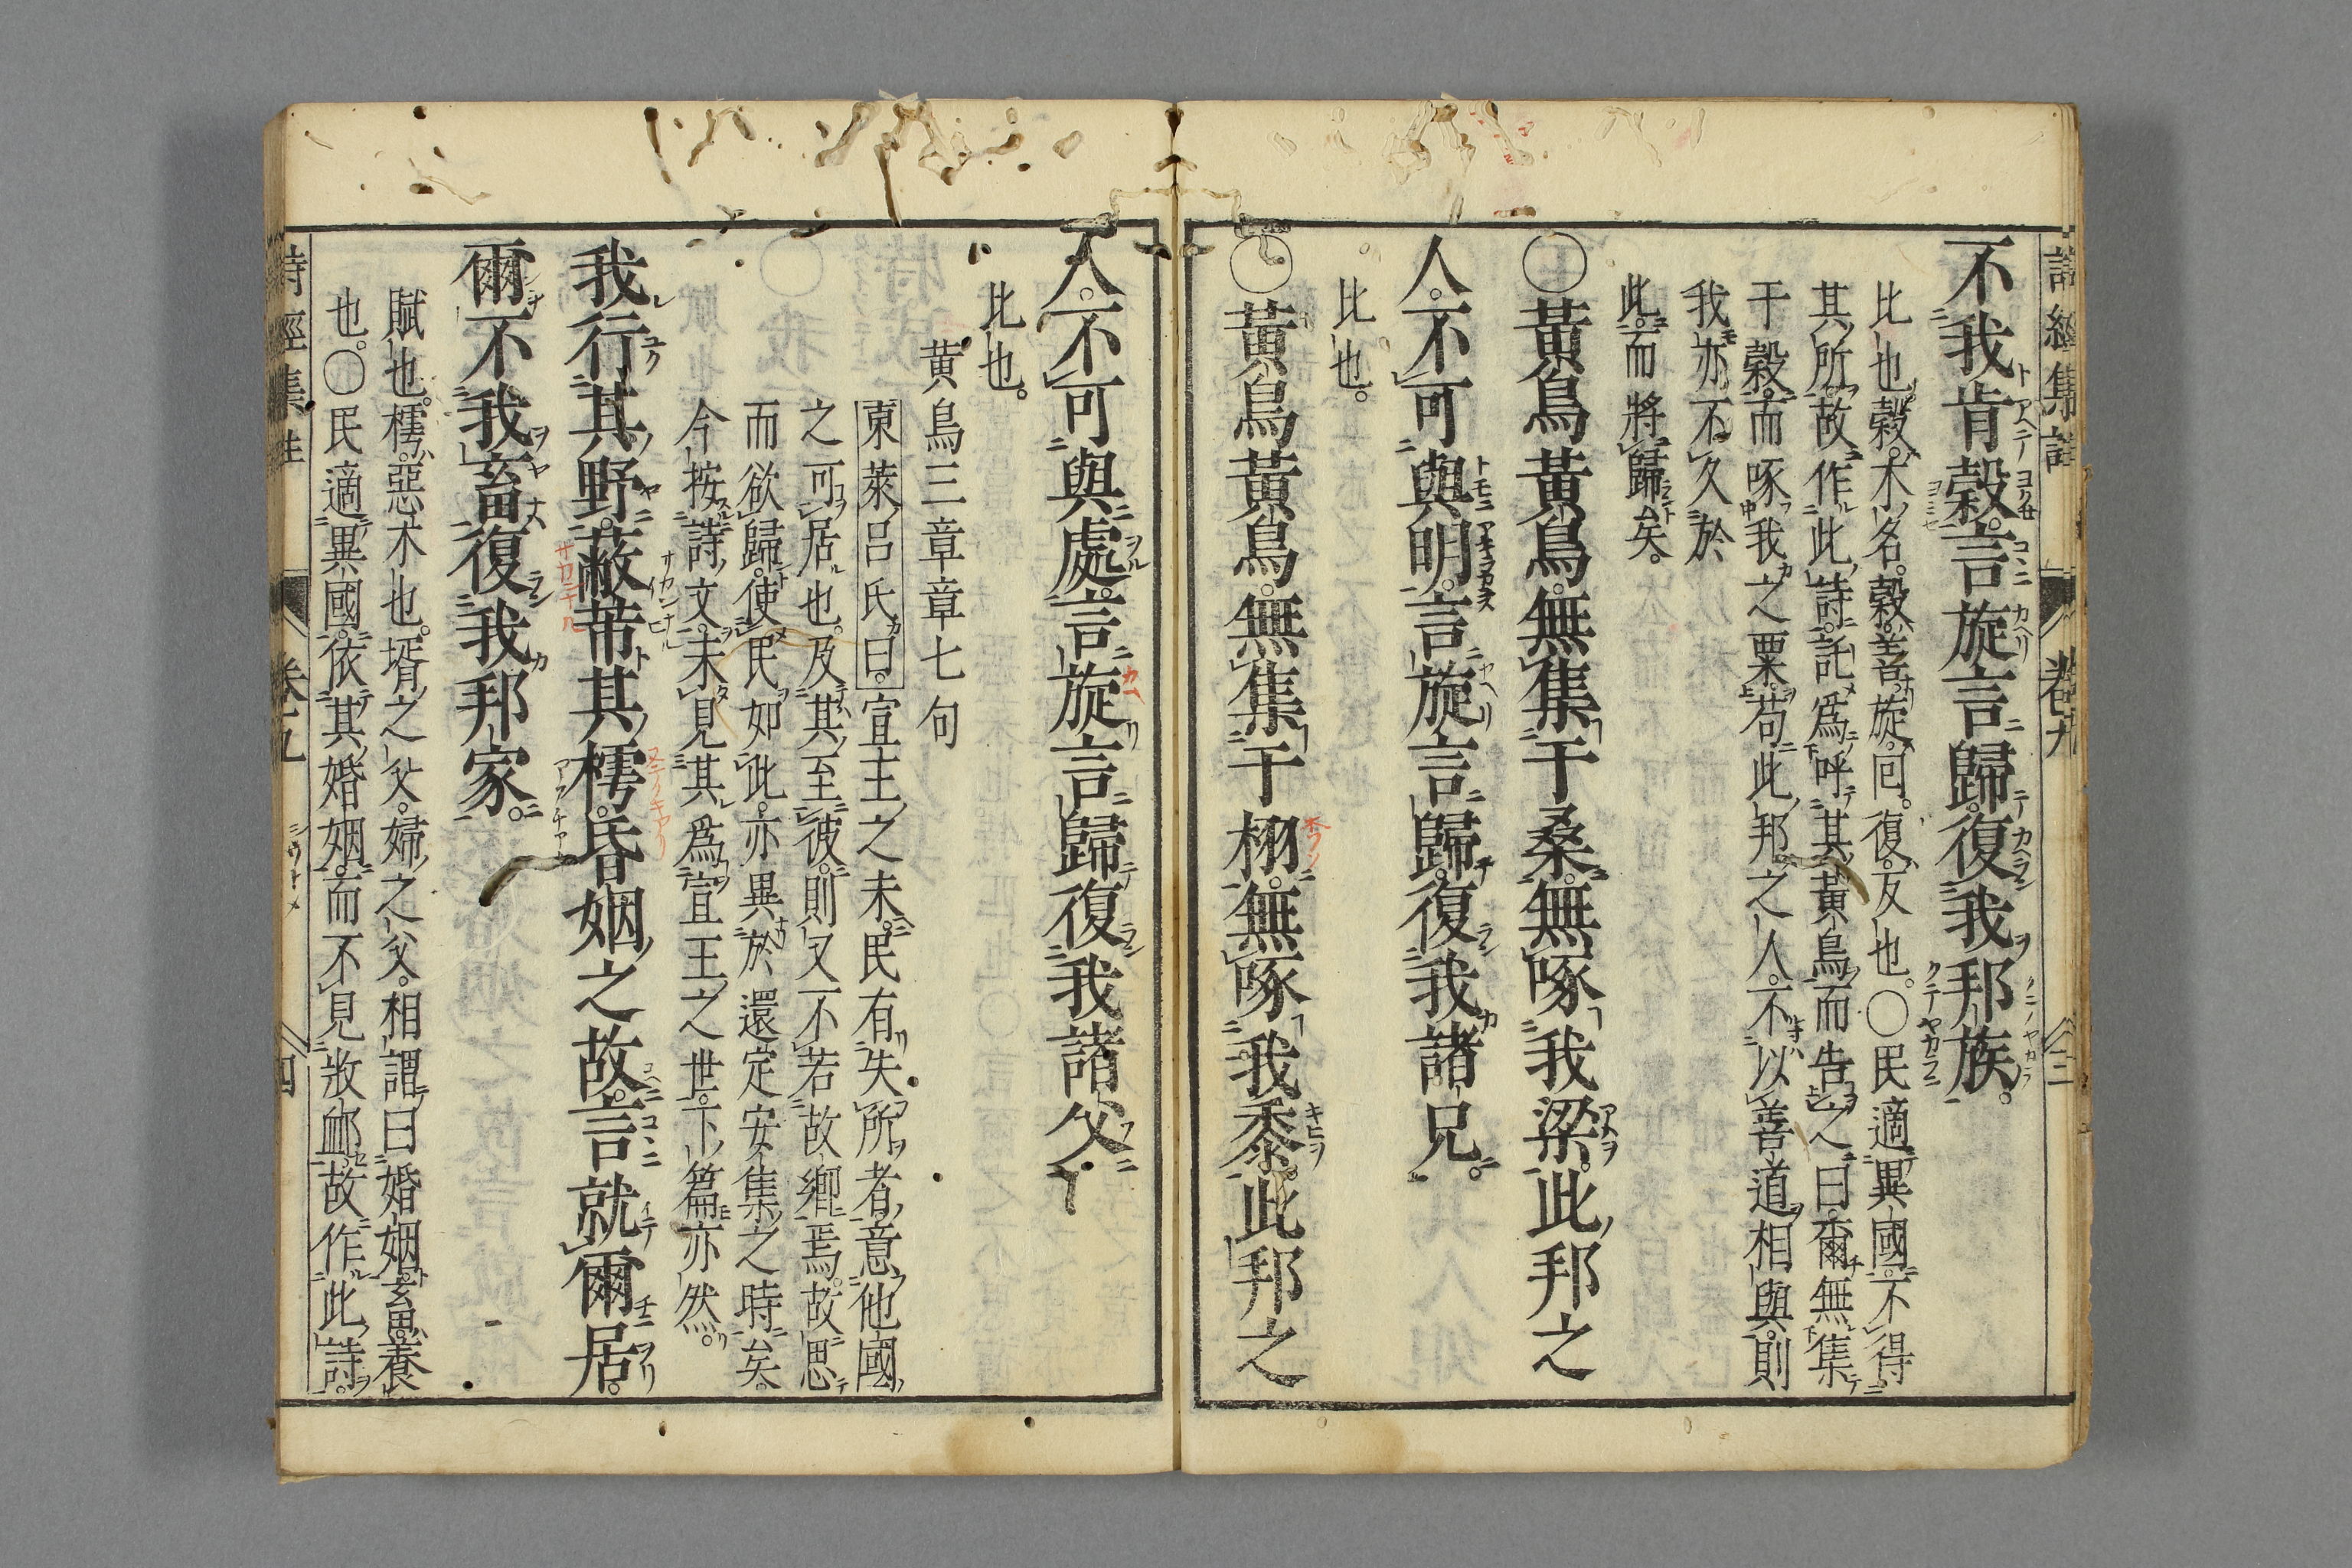 不我肯穀言旋言歸復我邦族
比也穀木名穀善旋回復反也○民適異國不得
其所故作此詩託爲呼其黃鳥而告之曰爾無集
于穀而啄我之粟苟此邦之人不以善道相與則
我亦不久於
此而將歸矣
○黃鳥黃鳥無集于桑無啄我梁此邦之
人不可與明言旋言歸復我諸兄
比也
○黃鳥黃鳥無集于栩無啄我黍此邦之
人不可與處言旋言歸復我諸父
比也
黃鳥三章章七句
東萊呂氏曰宣王之末民有失所者意他國
之可居也及其至彼則又不若故鄉焉故思
而欲歸使民如此亦異於還定安集之時矣
今按詩文未見其爲宣王之世下篇亦然
我行其野蔽芾其樗昏姻之故言就爾居
爾不我畜復我邦家
賦也樗惡木也壻之父婦之父相謂曰婚姻畜養
也○民適異國依其婚姻而不見收䘏故作此詩
詩經集註 卷五 四